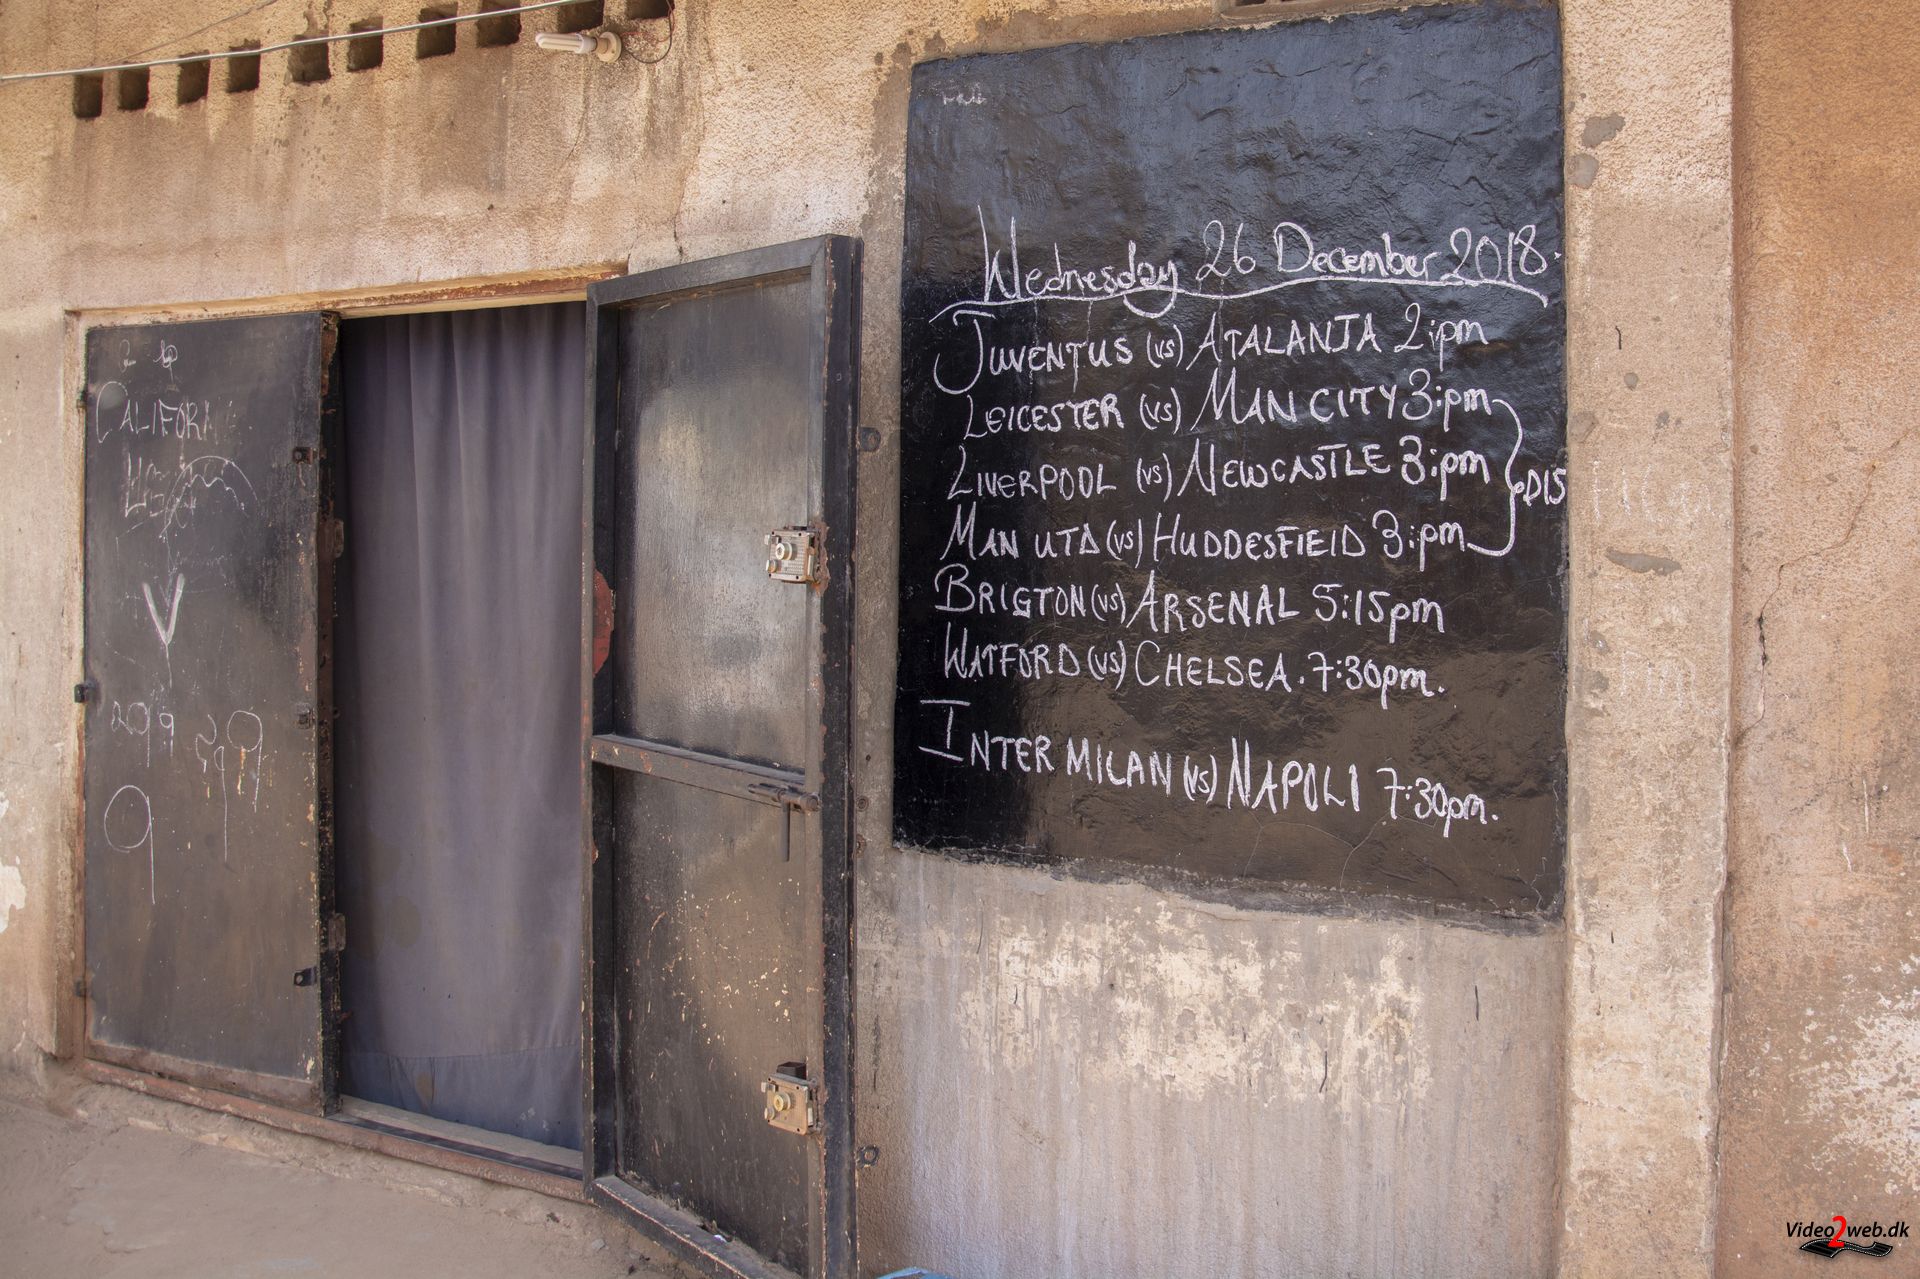 Wednesday 26 December 2018.
JUVENTUS (VS) ATALANTA 2:pm
LEICESTER (VS) MAN CITY 3:pm
LIVERPOOL (VS) NEWCASTLE 3:pm
D15
MAN UTD (VS) HUDDESFIELD 3:pm
BRIGTON (VS) ARSENAL 5:15pm
WATFORD (VS) CHELSEA. 7:30pm.
INTER MILAN (VS) NAPOLI 7:30pm.
CALIFORN
V
9
Video2web.dk